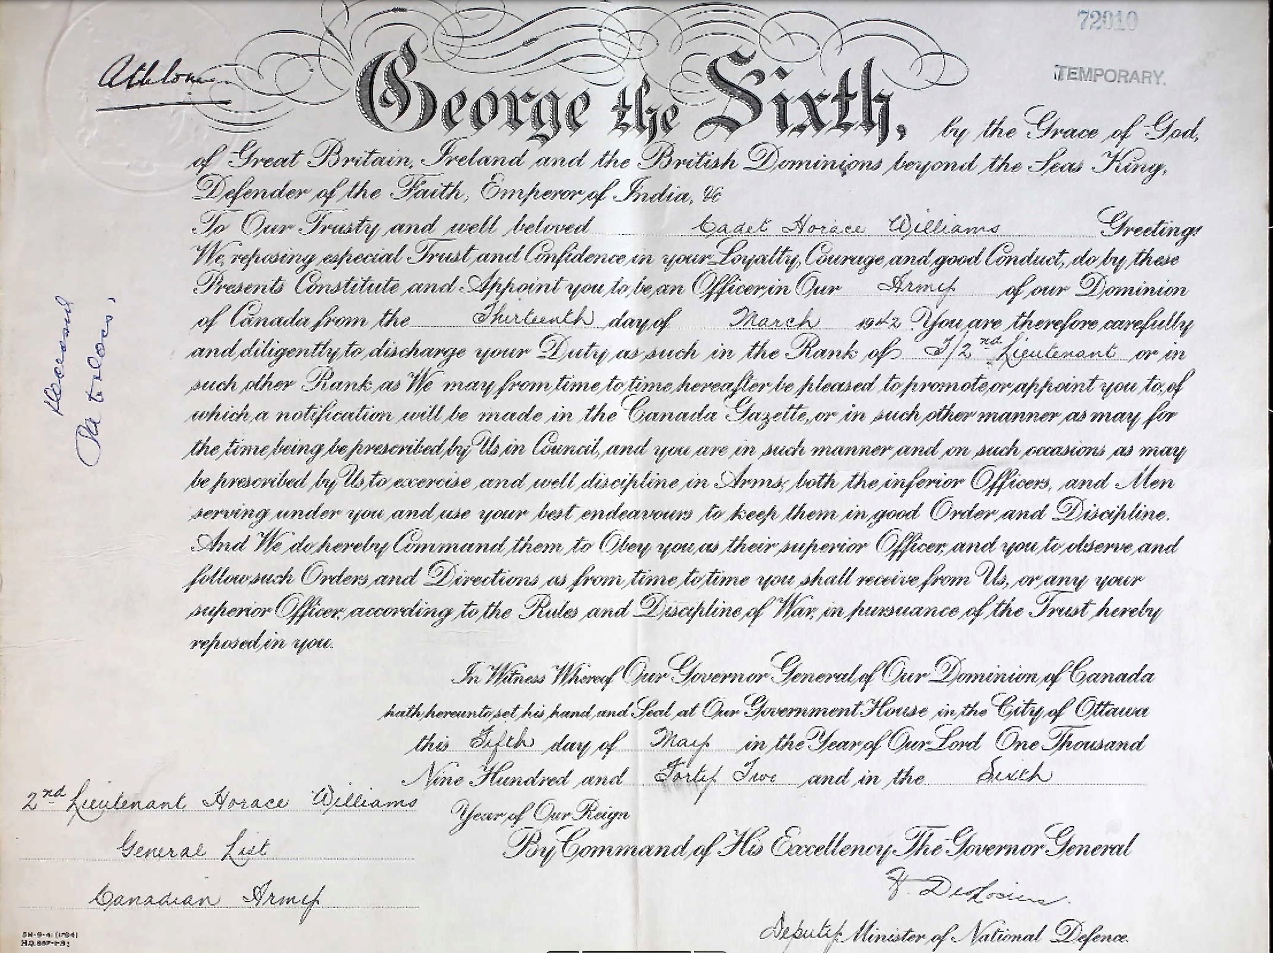 72010
TEMPORARY.
Athlone
George the Sixth, by the Grace of God,
of Great Britain, Ireland and the British Dominions beyond the Seas King,
Defender of the Faith, Emperor of India, &c
To Our Trusty and well beloved Cadet Horace Williams Greeting:
We, reposing especial Trust and Confidence in your Loyalty, Courage, and good Conduct, do by these
Presents Constitute and Appoint you to be an Officer in Our Army of our Dominion
of Canada from the Thirteenth day of March 1942 You are therefore carefully
and diligently to discharge your Duty as such in the Rank of T/2nd Lieutenant or in
such other Rank as We may from time to time hereafter be pleased to promote or appoint you to, of
which a notification will be made in the Canada Gazette, or in such other manner as may for
the time being be prescribed by Us in Council, and you are in such manner and on such occasions as may
be prescribed by Us to exercise and well discipline in Arms, both the inferior Officers, and Men
serving under you and use your best endeavours to keep them in good Order and Discipline.
And We do hereby Command them to Obey you as their superior Officer, and you to observe and
follow such Orders and Directions as from time to time you shall receive from Us, or any your
superior Officer, according to the Rules and Discipline of War, in pursuance of the Trust hereby
reposed in you.
In Witness Whereof Our Governor General of Our Dominion of Canada
hath hereunto set his hand and Seal at Our Government House in the City of Ottawa
this Fifth day of May in the Year of Our Lord One Thousand
Nine Hundred and Forty Two and in the Sixth
Year of Our Reign
By Command of His Excellency The Governor General
Deputy Minister of National Defence.
2nd Lieutenant Horace Williams
General List
Canadian Army
Deceased